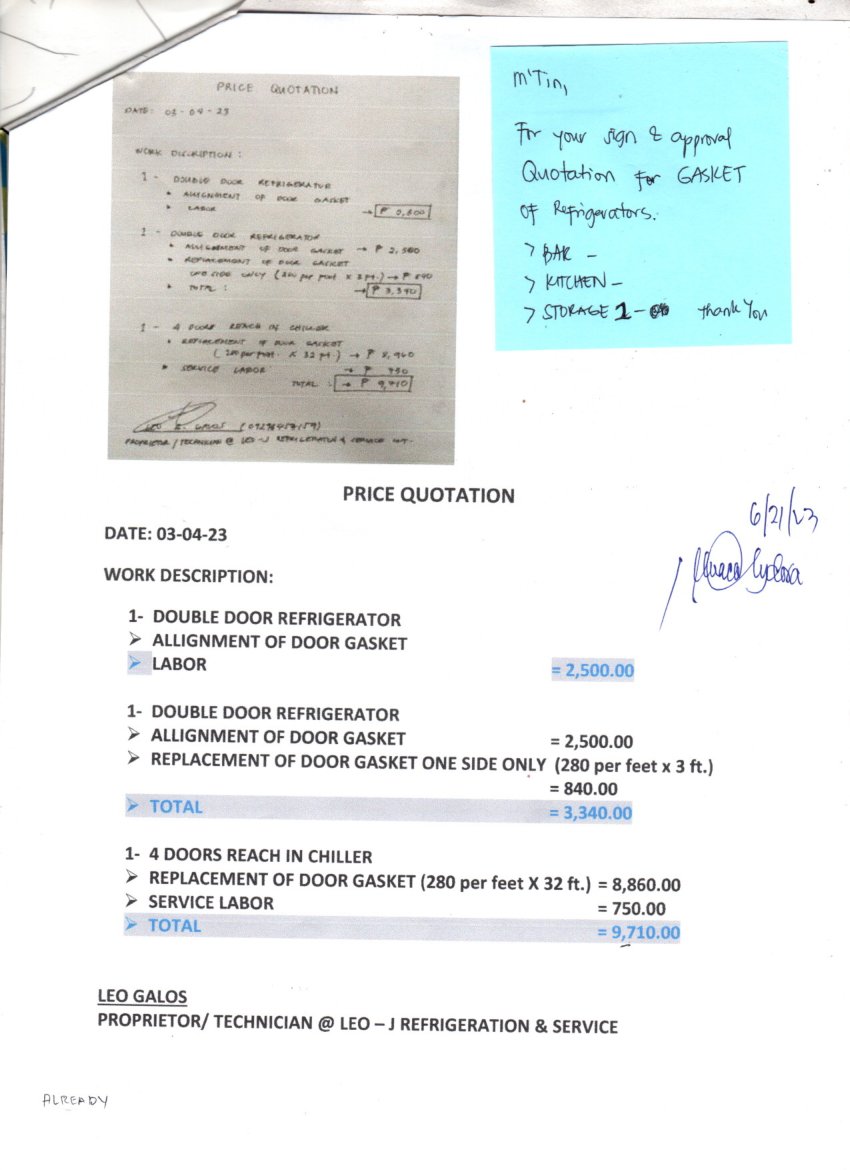 PRICE QUOTATION
DATE: 03-04-23
WORK DESCRIPTION:
1 - DOUBLE DOOR REFRIGERATOR
• ALLIGNMENT OF DOOR GASKET
• LABOR → ₱
1 - DOUBLE DOOR REFRIGERATOR
• ALLIGNMENT OF DOOR GASKET → ₱ 2,500
• REPLACEMENT OF DOOR GASKET
ONE SIDE ONLY (280 per feet x 3 ft.) → ₱ 840
• TOTAL : → ₱ 3,340
1 - 4 DOORS REACH IN CHILLER
• REPLACEMENT OF DOOR GASKET
(280 per feet. X 32 ft.) → ₱ 8,960
• SERVICE LABOR → ₱ 750
TOTAL : → ₱ 9,710
LEO GALOS
PROPRIETOR / TECHNICIAN @ LEO-J REFRIGERATION & SERVICE
M'Tin,
For your sign & approval
Quotation For GASKET
of Refrigerators.
> BAR -
> KITCHEN -
> STORAGE 1 - thank you
PRICE QUOTATION
6/21/23
DATE: 03-04-23
WORK DESCRIPTION:
1- DOUBLE DOOR REFRIGERATOR
➢ ALLIGNMENT OF DOOR GASKET
➢ LABOR = 2,500.00
1- DOUBLE DOOR REFRIGERATOR
➢ ALLIGNMENT OF DOOR GASKET = 2,500.00
➢ REPLACEMENT OF DOOR GASKET ONE SIDE ONLY (280 per feet x 3 ft.)
= 840.00
➢ TOTAL = 3,340.00
1- 4 DOORS REACH IN CHILLER
➢ REPLACEMENT OF DOOR GASKET (280 per feet X 32 ft.) = 8,860.00
➢ SERVICE LABOR = 750.00
➢ TOTAL = 9,710.00
LEO GALOS
PROPRIETOR/ TECHNICIAN @ LEO – J REFRIGERATION & SERVICE
ALREADY